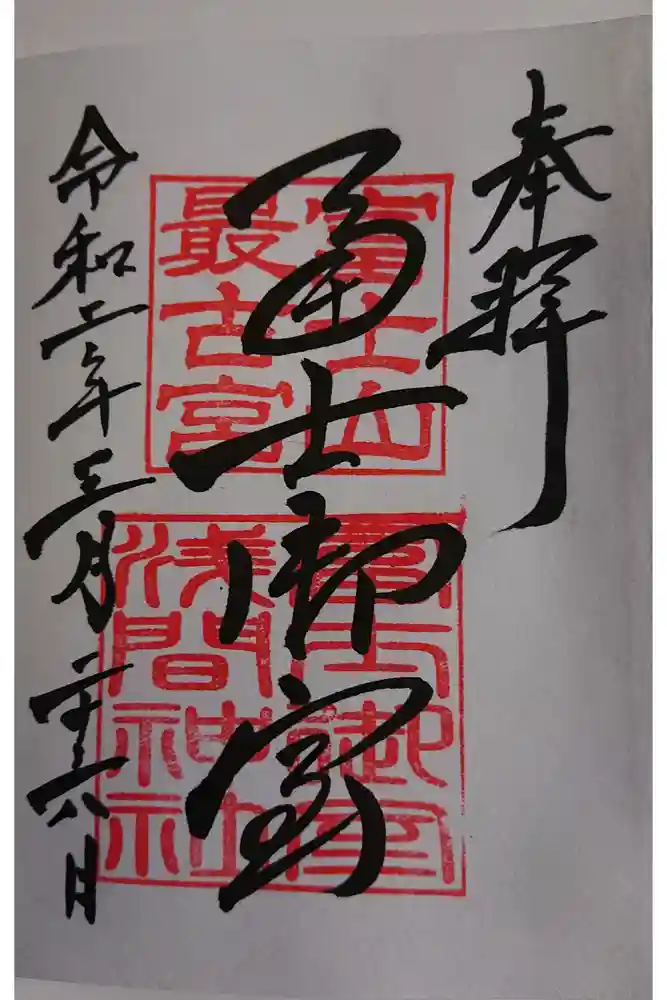 奉拝
冨士御室
富士山
最古宮
冨士御室
浅間神社
令和二年三月二十六日